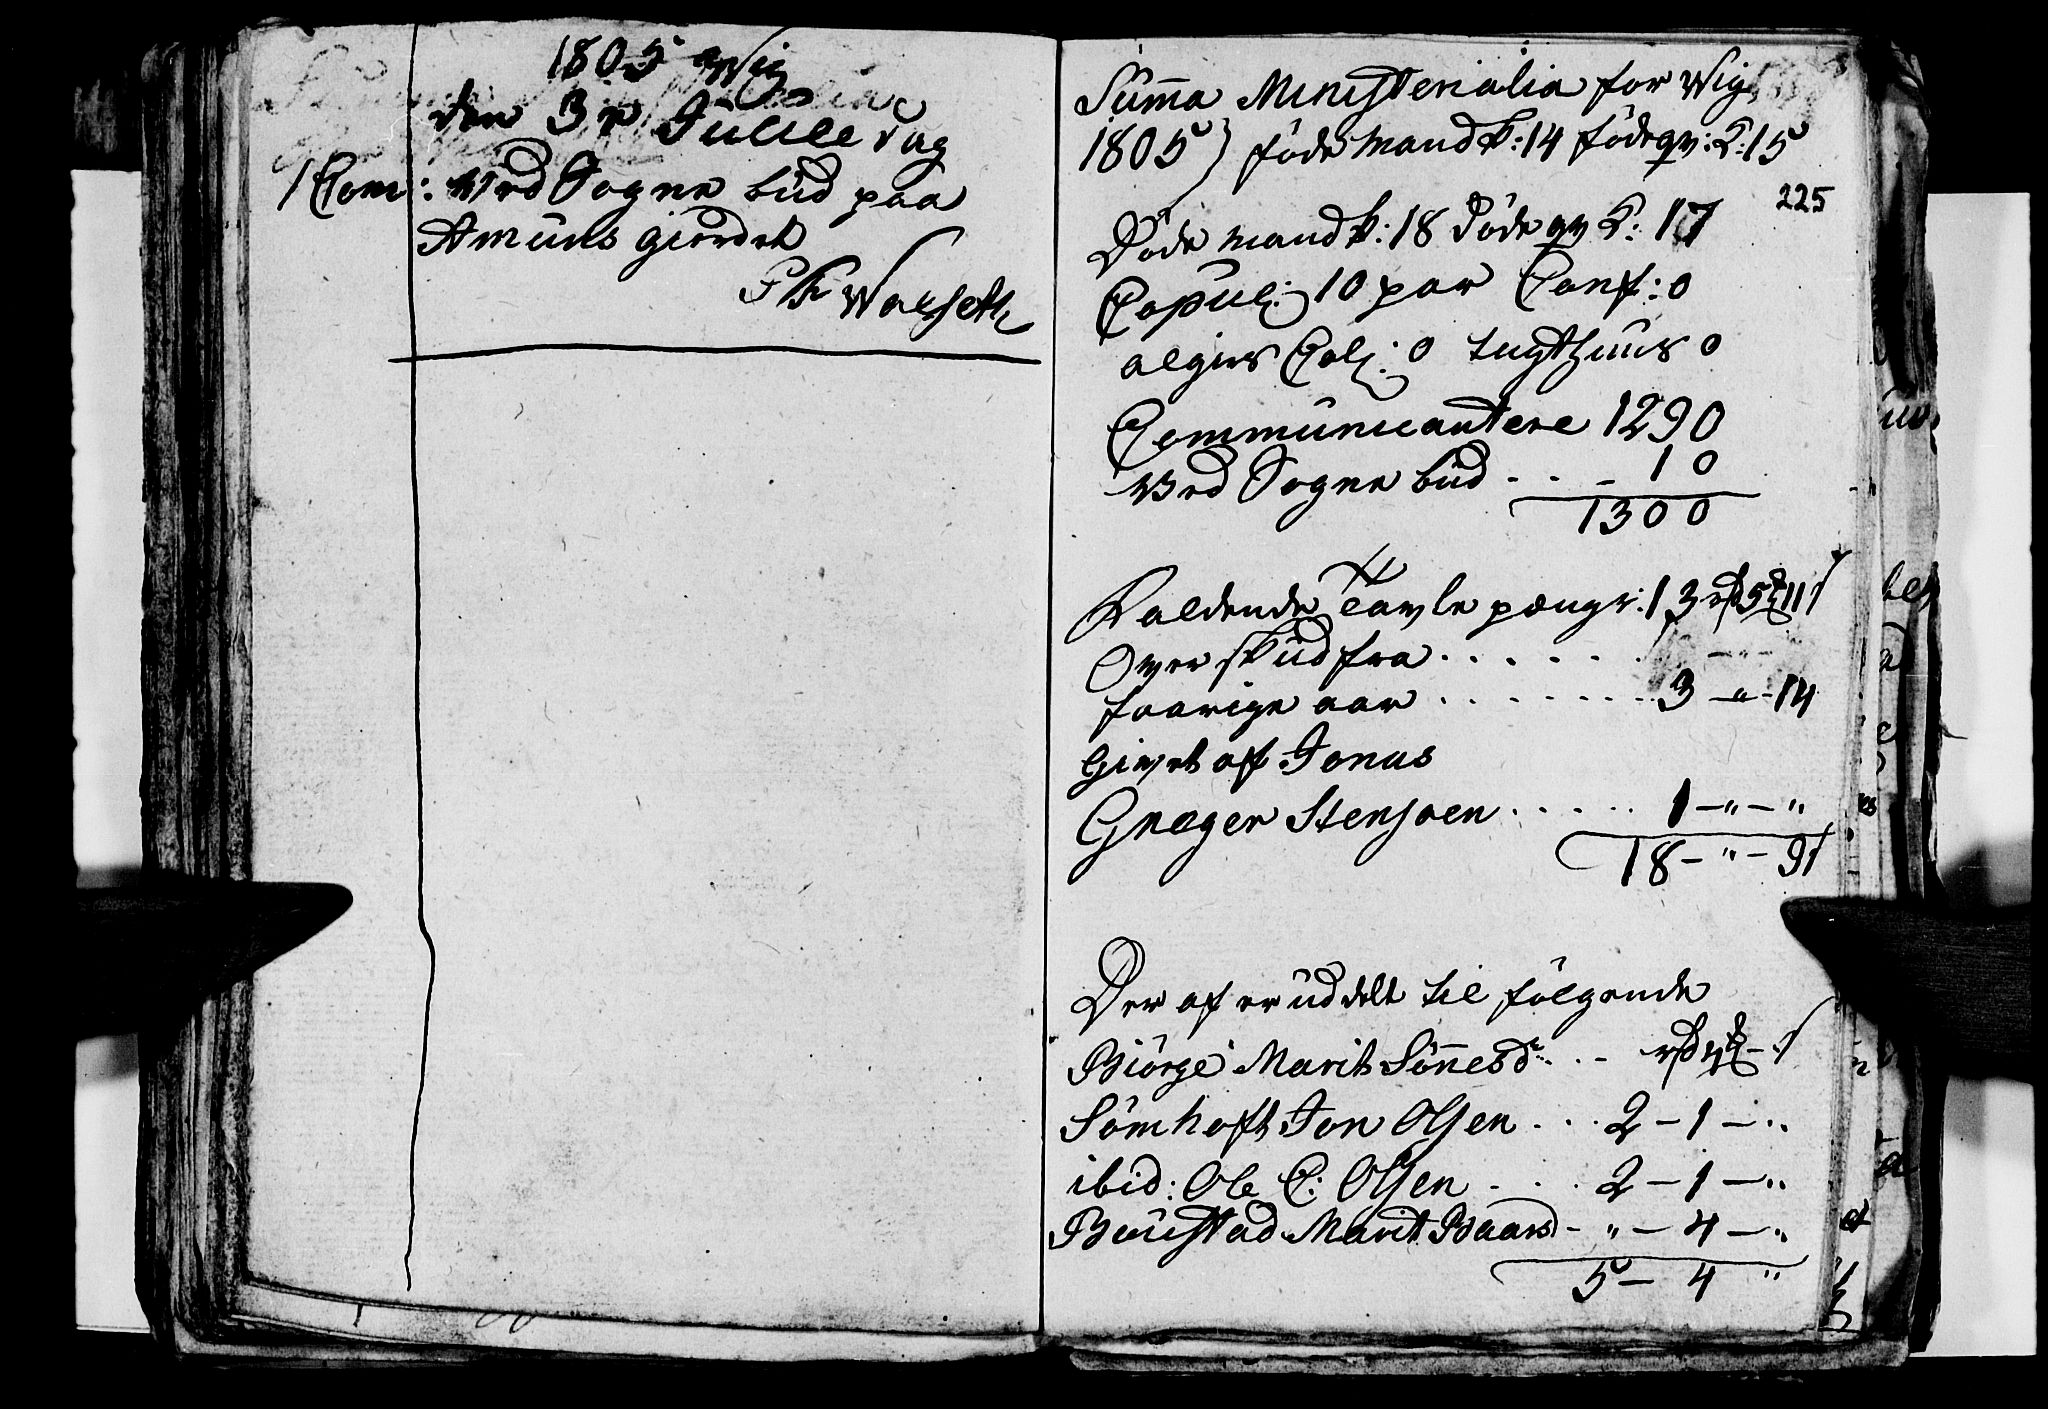 1805 Wig
den 3e Juule dag
1 Com: Ved Sogne bud paa
Amuns gierdet
Walseth
Suma Ministerialia for Wig
1805 föde Mandk: 14 föde qv: K: 15
225
Døde mandk: 18 Døde qv K: 17
Copul: 10 par Conf: 0
algirs Coll: 0 tugthuus 0
Communicantere 1290
Ved Sogne bud . . . 10
1300
Faldende Tavle pænge: 13 rd 5 11 s
Over skud fra . . . . . .
faarige aar . . . . . . . 3 – " – 14
Givet af Jonas
Græger Stensoen . . . . . 1 – " – "
18 – " – 9 s
Der af er uddelt til følgende
Biörge Marit Sönnesd: . . rd – s
Sömhoft Jon Olsen . . . 2 – 1 – "
ibid: Ole C: Olsen . . . 2 – 1 – "
Baustad Marit Baars – " – 4 – "
5 – 4 "